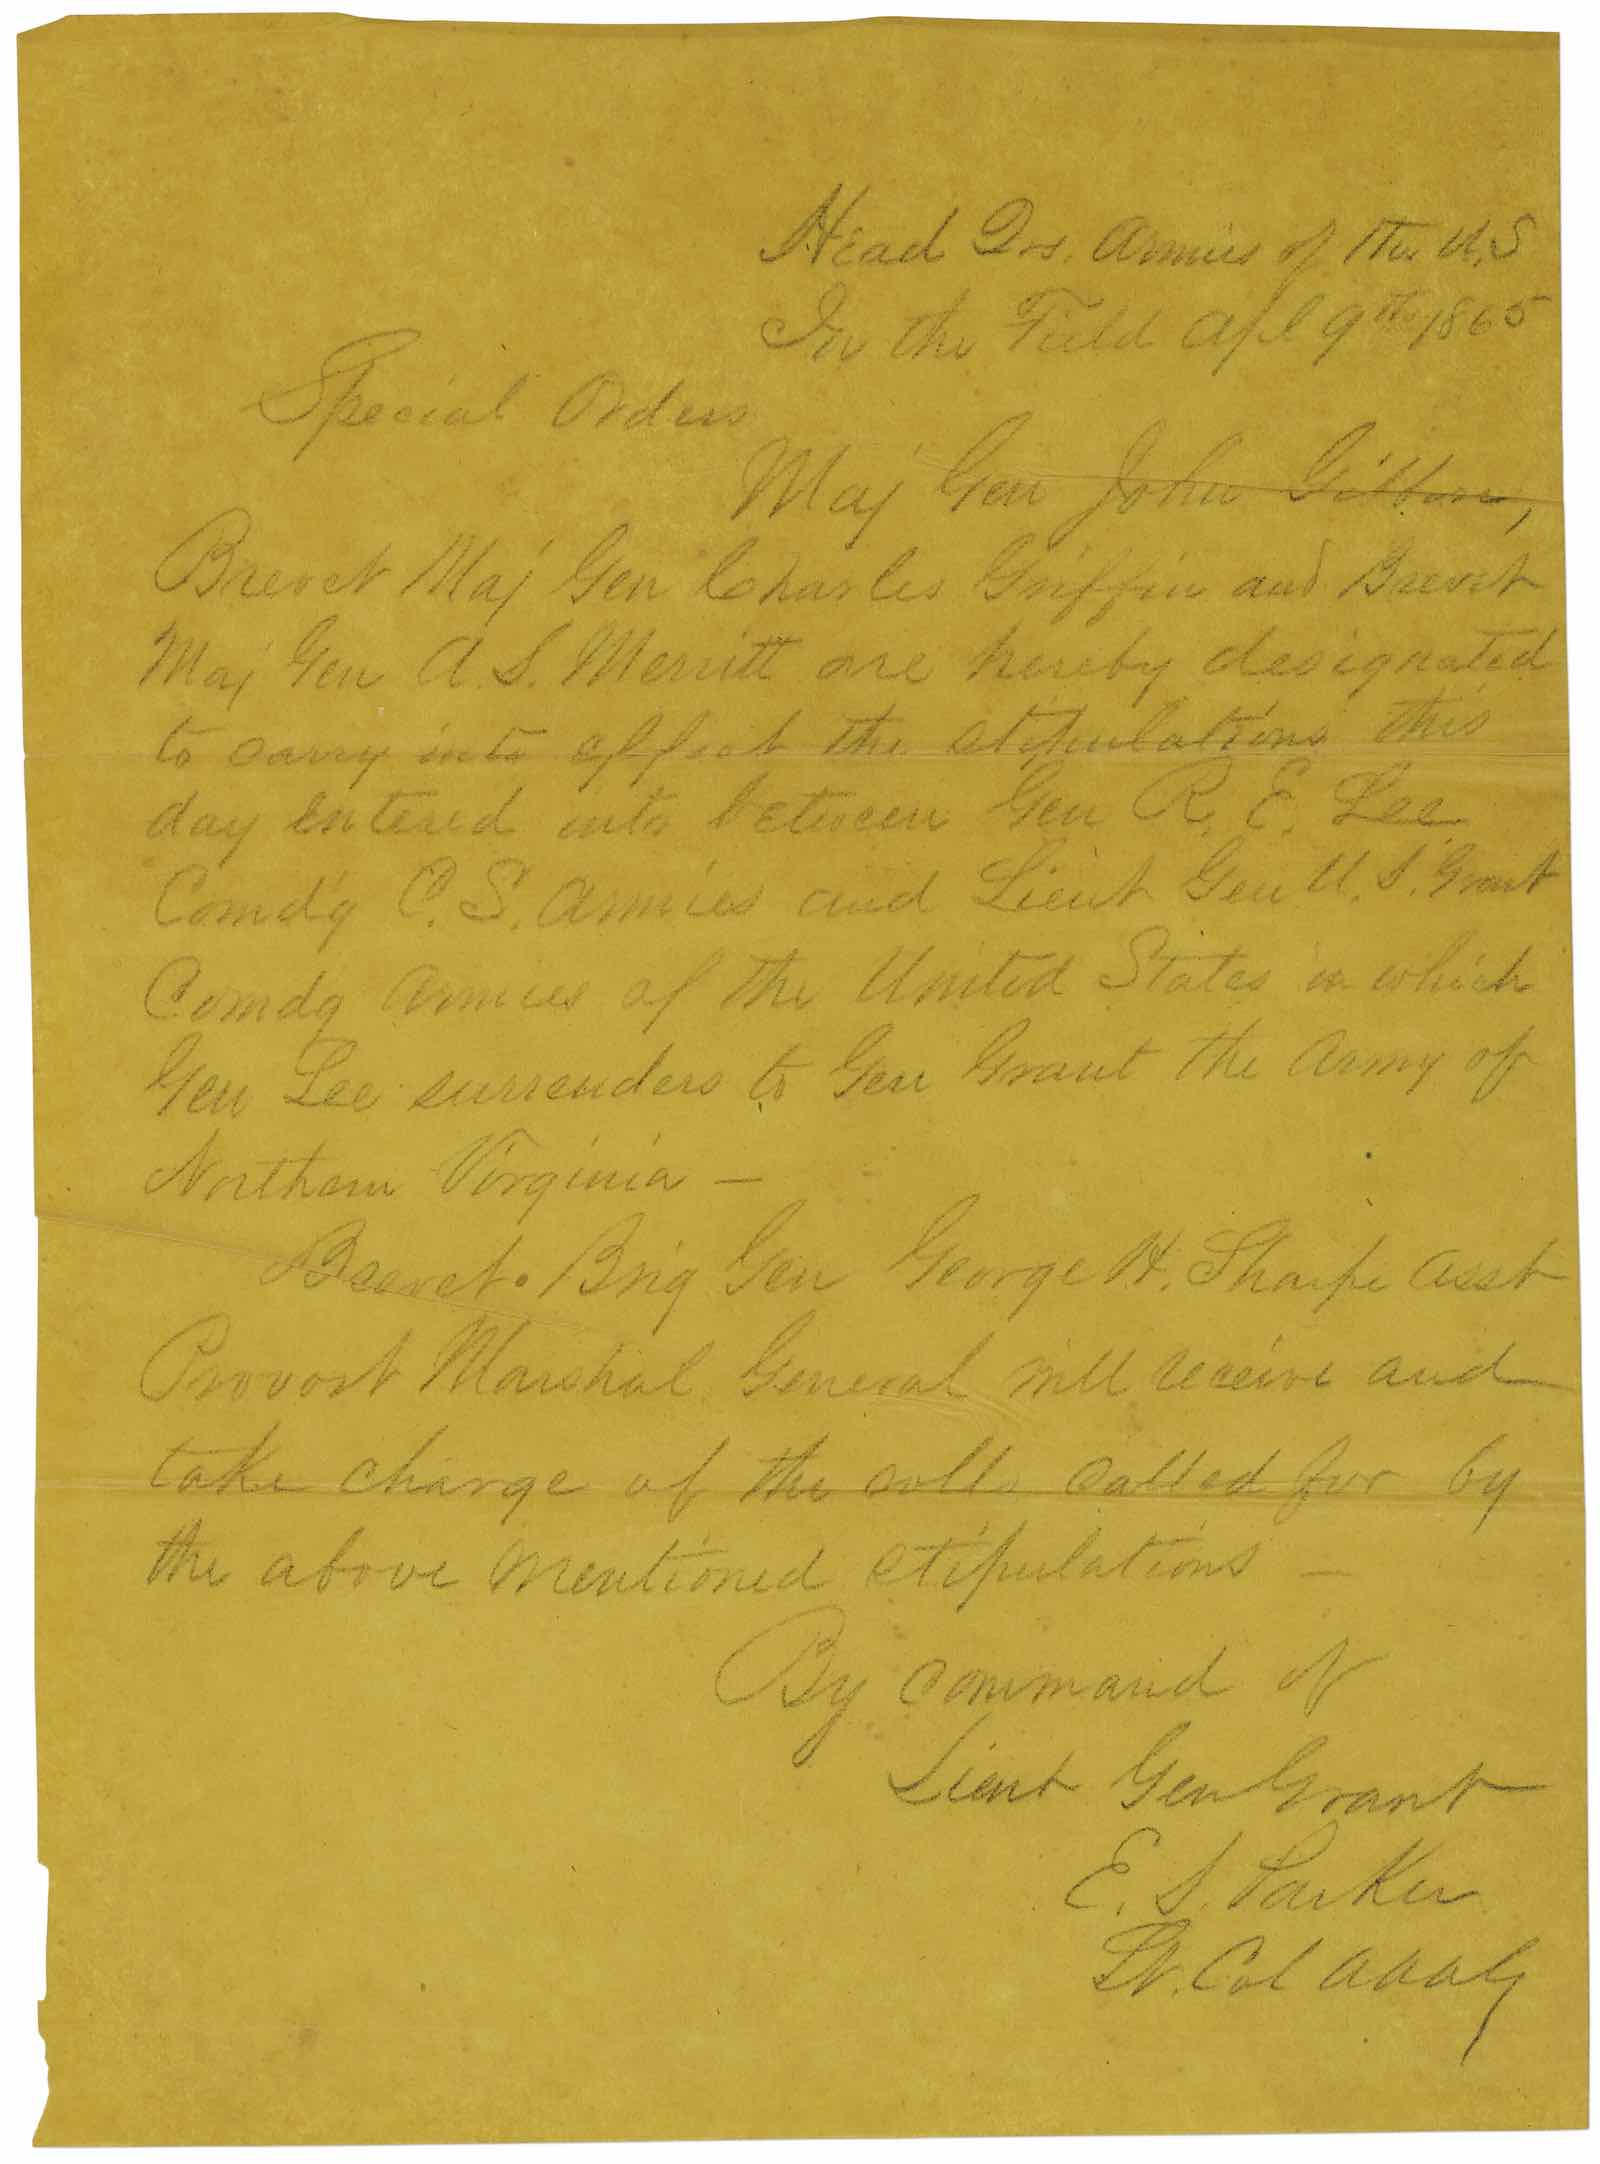 Head Qrs. Armies of the U.S
In the Field Apl 9th 1865
Special Orders
Maj Gen John Gibbon,
Brevet Maj Gen Charles Griffin and Brevet
Maj Gen A. S. Merritt are hereby designated
to carry into effect the stipulations this
day entered into between Gen R. E. Lee
Comd'g C. S. Armies and Lieut Gen U. S. Grant
Comdg Armies of the United States in which
Gen Lee surrenders to Gen Grant the Army of
Northern Virginia —
Brevet. Brig Gen George H. Sharpe Asst
Provost Marshal General will receive and
take charge of the rolls called for by
the above mentioned stipulations —
By command of
Lieut Gen Grant
E. S. Parker
Lt. Col AAAG